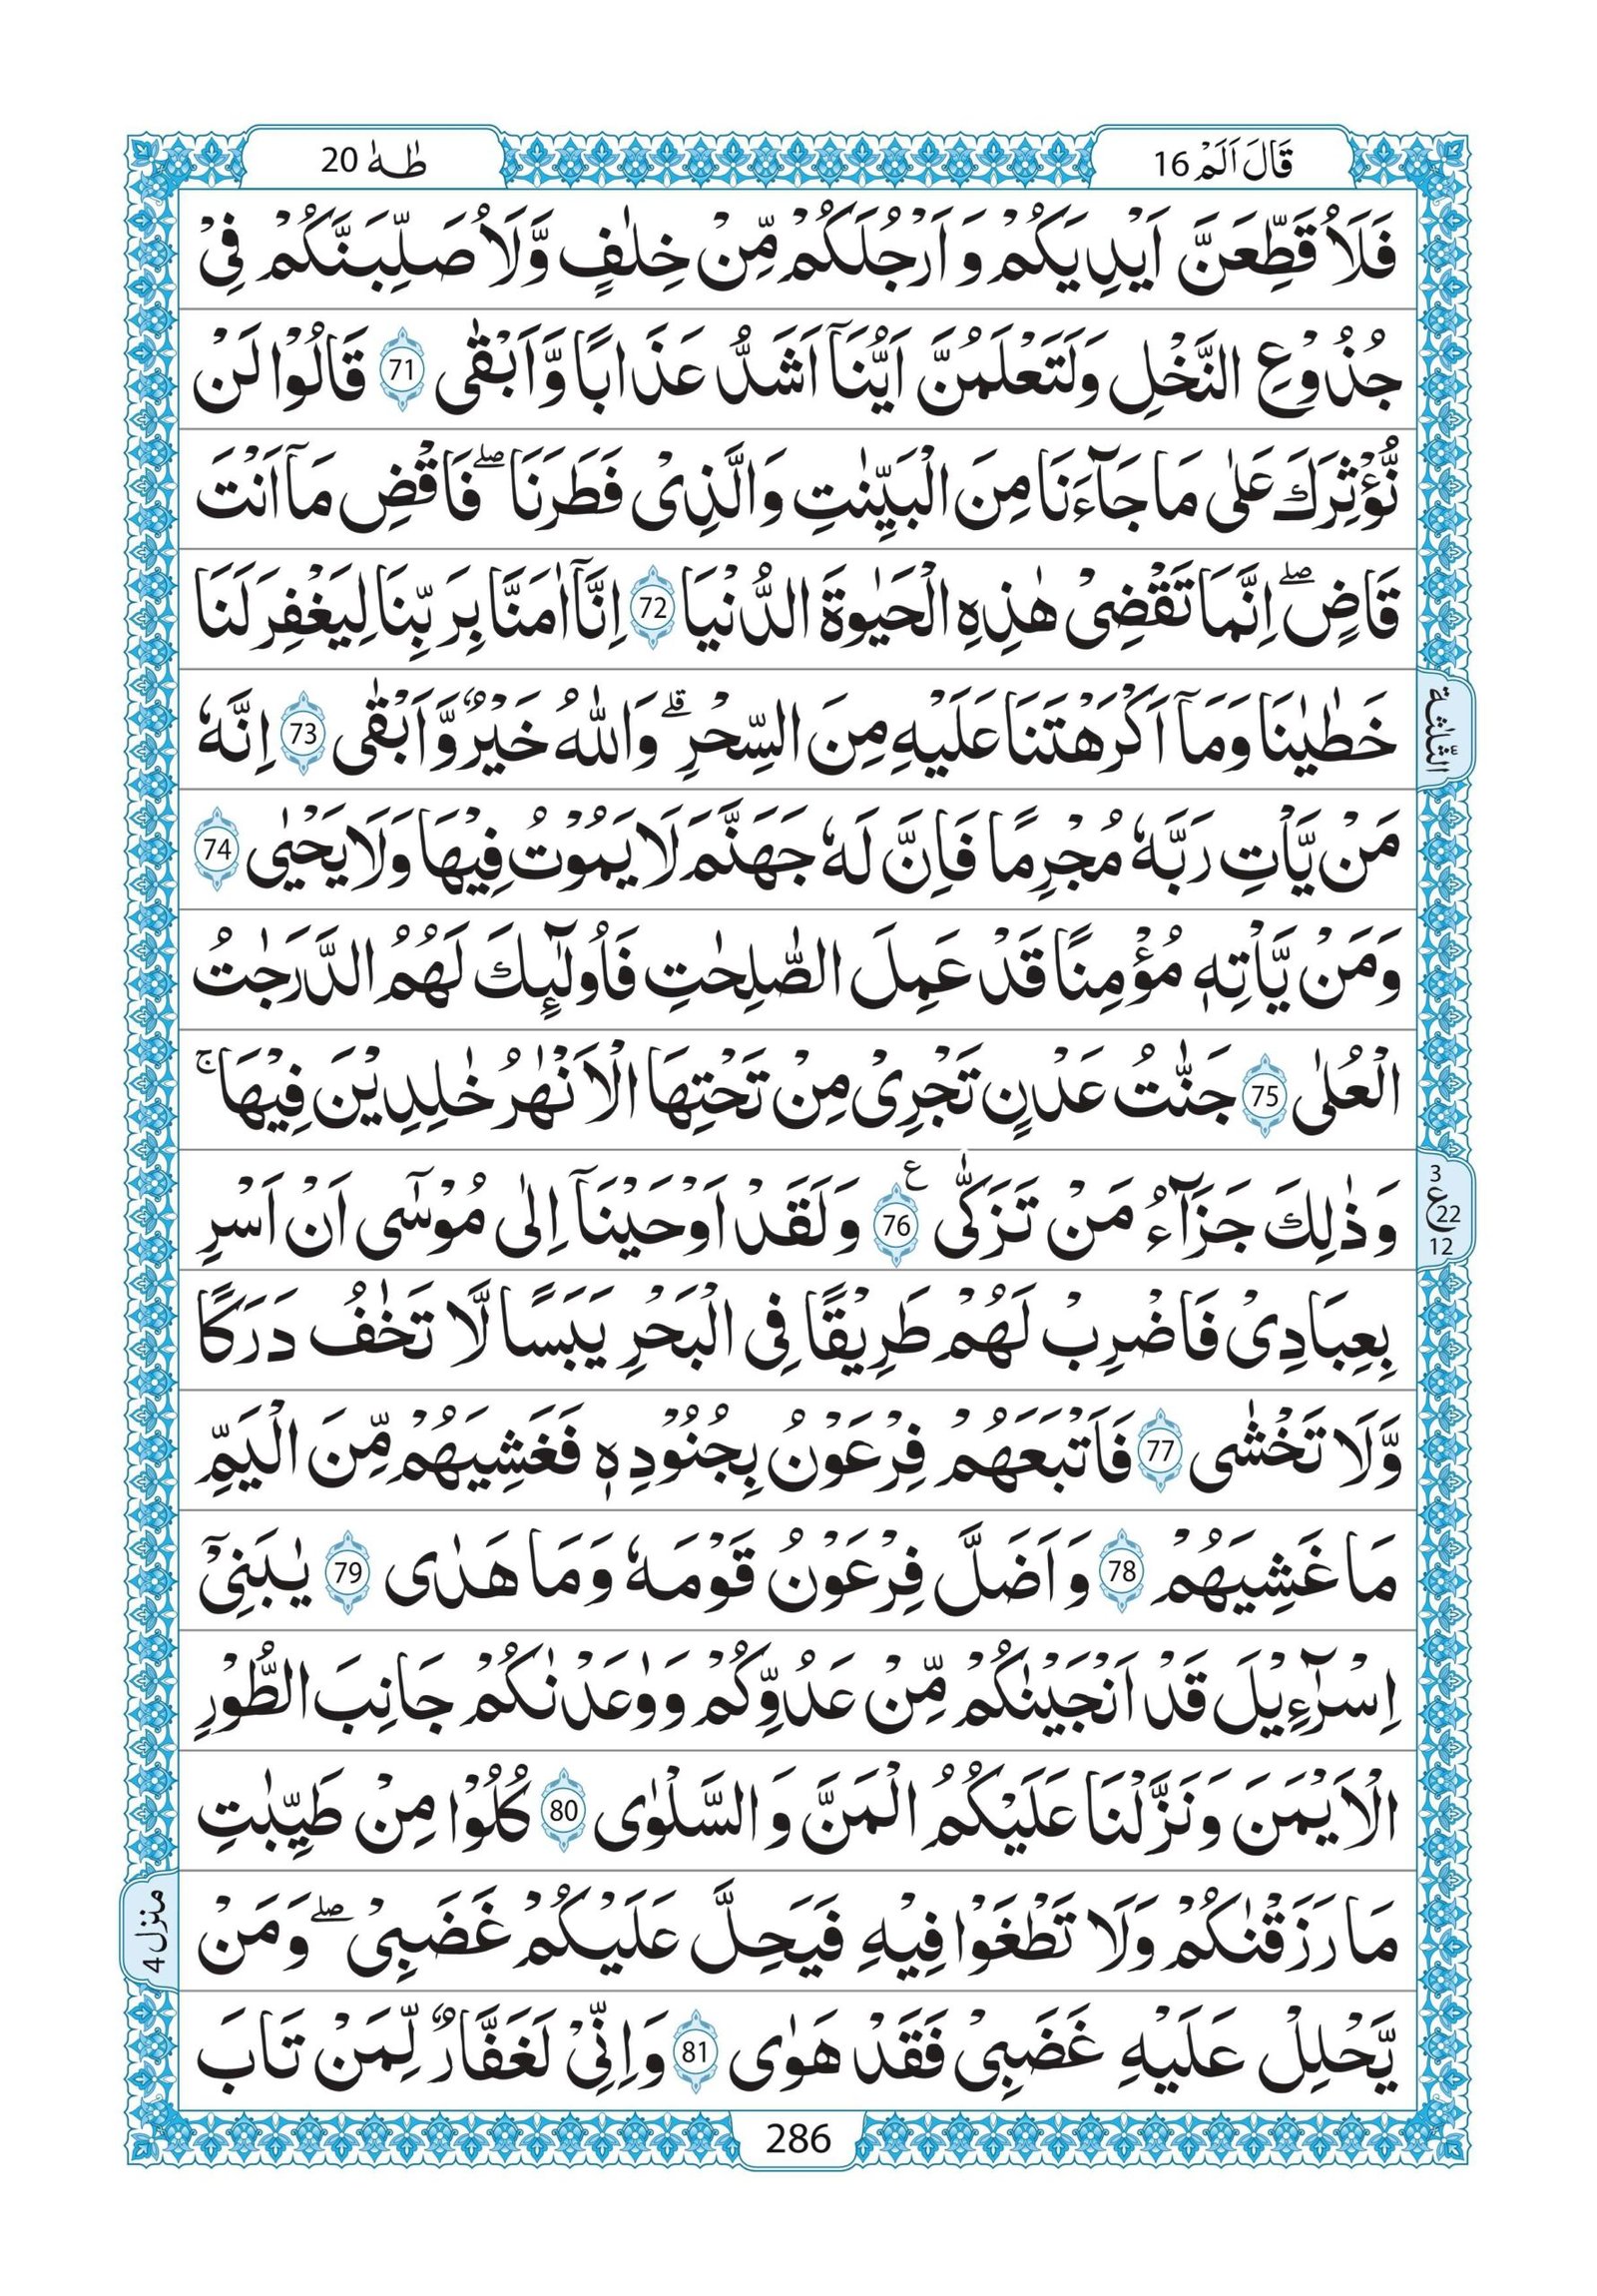 قَالَ اَلَمْ 16
طٰهٰ 20
فَلَاُقَطِّعَنَّ اَيْدِيَكُمْ وَ اَرْجُلَكُمْ مِّنْ خِلَافٍ وَّلَاُصَلِّبَنَّكُمْ فِىْ
جُذُوْعِ النَّخْلِ وَلَتَعْلَمُنَّ اَيُّنَاۤ اَشَدُّ عَذَابًا وَّاَبْقٰى 71 قَالُوْا لَنْ
نُّؤْثِرَكَ عَلٰى مَا جَآءَنَا مِنَ الْبَيِّنٰتِ وَالَّذِىْ فَطَرَنَاۖ فَاقْضِ مَاۤ اَنْتَ
قَاضٍۖ اِنَّمَا تَقْضِىْ هٰذِهِ الْحَيٰوةَ الدُّنْيَا 72 اِنَّاۤ اٰمَنَّا بِرَبِّنَا لِيَغْفِرَ لَنَا
خَطٰيٰنَا وَمَاۤ اَكْرَهْتَنَا عَلَيْهِ مِنَ السِّحْرِؕ وَاللّٰهُ خَيْرٌ وَّاَبْقٰى 73 اِنَّهٗ
الثلٰثة
مَنْ يَّاْتِ رَبَّهٗ مُجْرِمًا فَاِنَّ لَهٗ جَهَنَّمَ لَا يَمُوْتُ فِيْهَا وَلَا يَحْيٰى 74
وَمَنْ يَّاْتِهٖ مُؤْمِنًا قَدْ عَمِلَ الصّٰلِحٰتِ فَاُولٰٓئِكَ لَهُمُ الدَّرَجٰتُ
الْعُلٰى 75 جَنّٰتُ عَدْنٍ تَجْرِىْ مِنْ تَحْتِهَا الْاَنْهٰرُ خٰلِدِيْنَ فِيْهَاۚ
وَذٰلِكَ جَزَآءُ مَنْ تَزَكّٰى 76 ع وَلَقَدْ اَوْحَيْنَاۤ اِلٰى مُوْسٰٓى اَنْ اَسْرِ
3
ع 22
12
بِعِبَادِىْ فَاضْرِبْ لَهُمْ طَرِيْقًا فِى الْبَحْرِ يَبَسًا لَّا تَخٰفُ دَرَكًا
وَّلَا تَخْشٰى 77 فَاَتْبَعَهُمْ فِرْعَوْنُ بِجُنُوْدِهٖ فَغَشِيَهُمْ مِّنَ الْيَمِّ
مَا غَشِيَهُمْ 78 وَاَضَلَّ فِرْعَوْنُ قَوْمَهٗ وَمَا هَدٰى 79 يٰبَنِىْۤ
اِسْرَآءِيْلَ قَدْ اَنْجَيْنٰكُمْ مِّنْ عَدُوِّكُمْ وَوٰعَدْنٰكُمْ جَانِبَ الطُّوْرِ
الْاَيْمَنَ وَنَزَّلْنَا عَلَيْكُمُ الْمَنَّ وَالسَّلْوٰى 80 كُلُوْا مِنْ طَيِّبٰتِ
مَا رَزَقْنٰكُمْ وَلَا تَطْغَوْا فِيْهِ فَيَحِلَّ عَلَيْكُمْ غَضَبِىْۖ وَمَنْ
منزل 4
يَّحْلِلْ عَلَيْهِ غَضَبِىْ فَقَدْ هَوٰى 81 وَاِنِّىْ لَغَفَّارٌ لِّمَنْ تَابَ
286